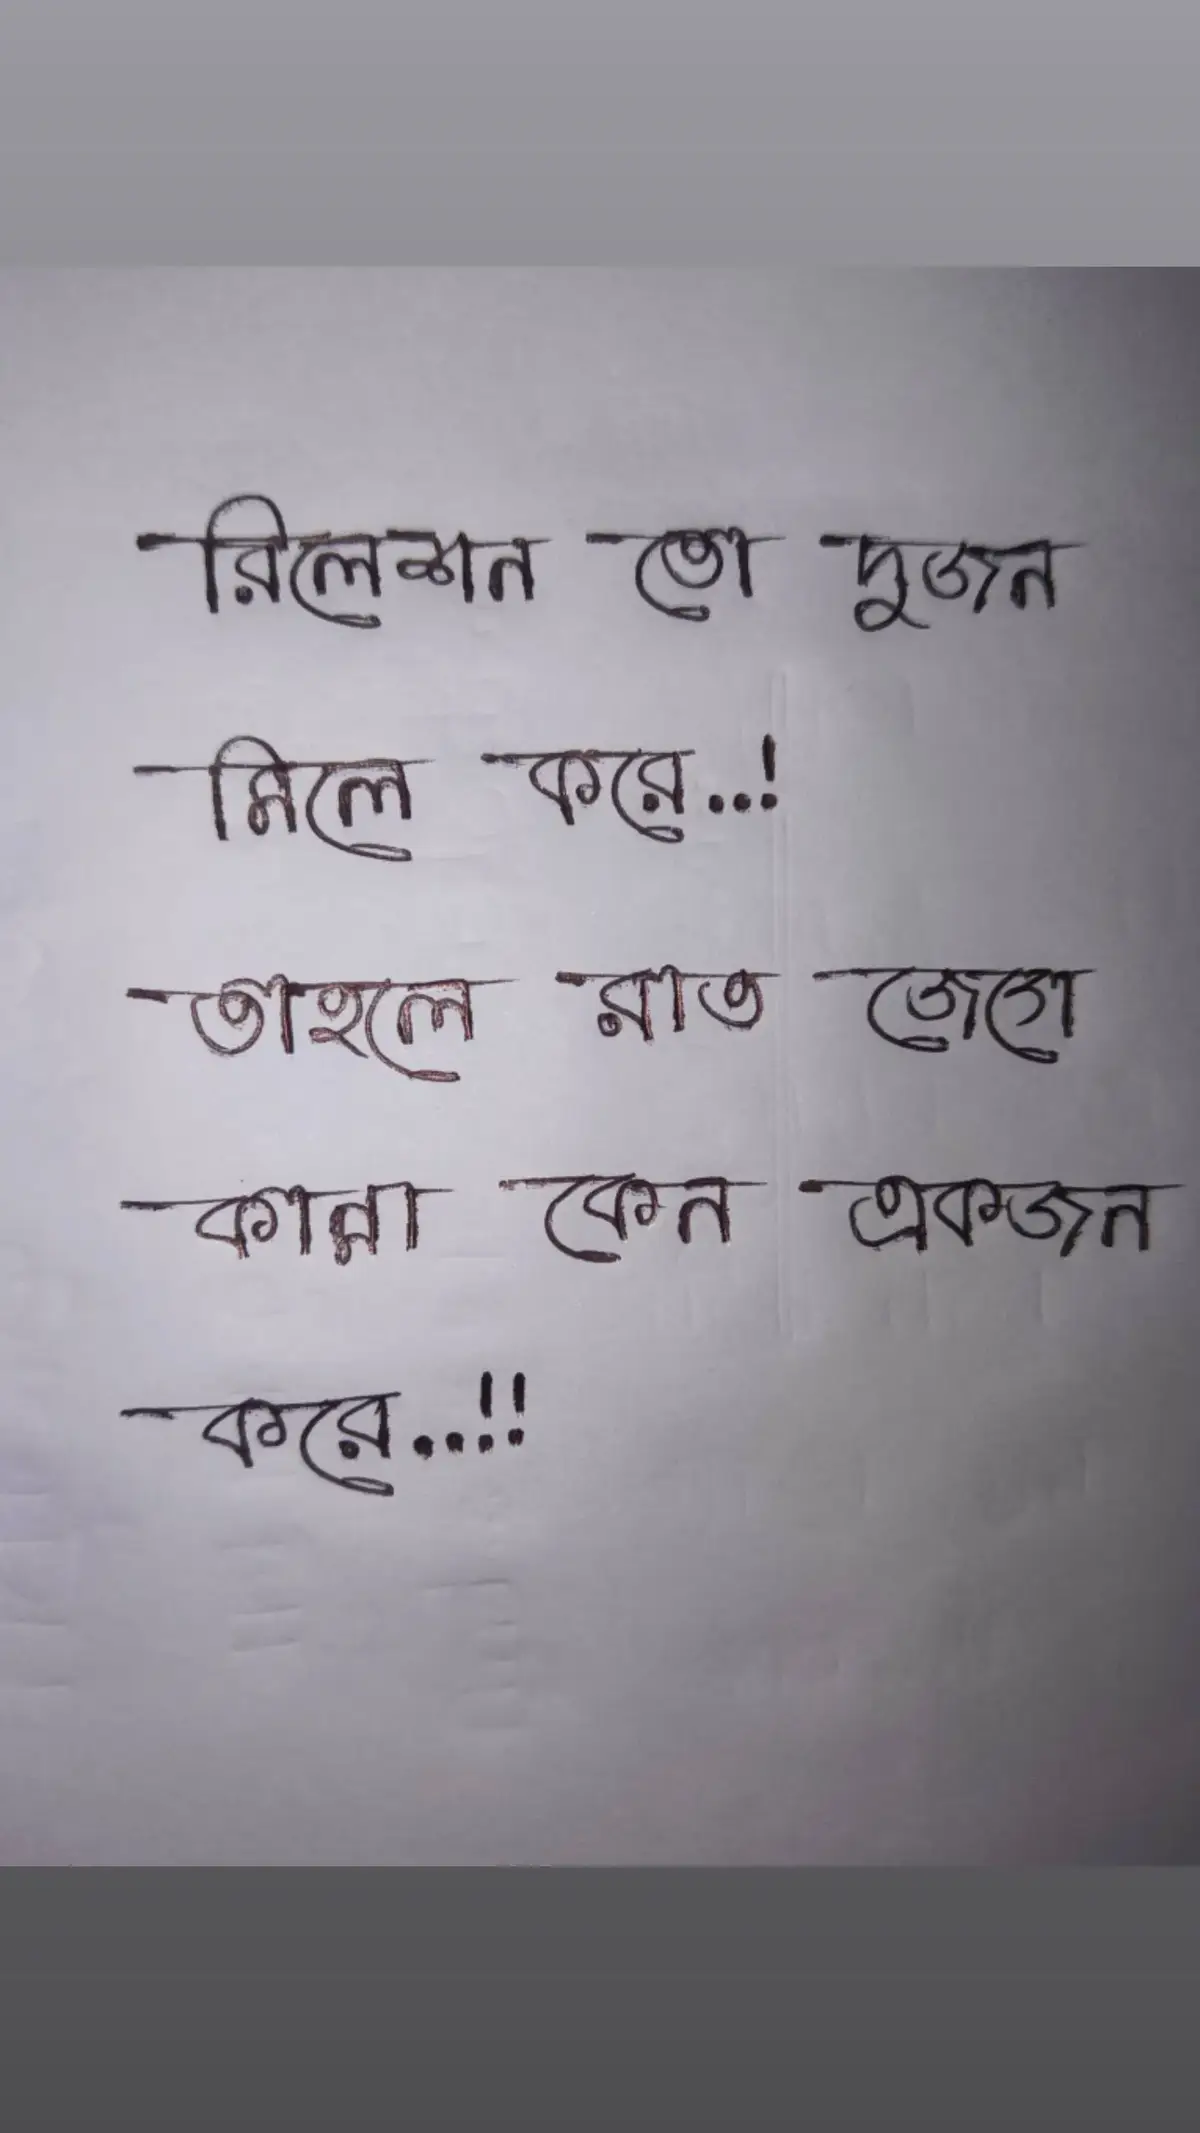 রিলেশন তো দুজন
মিলে করে..!
তাহলে রাত জেগে
কান্না কেন একজন
করে..!!